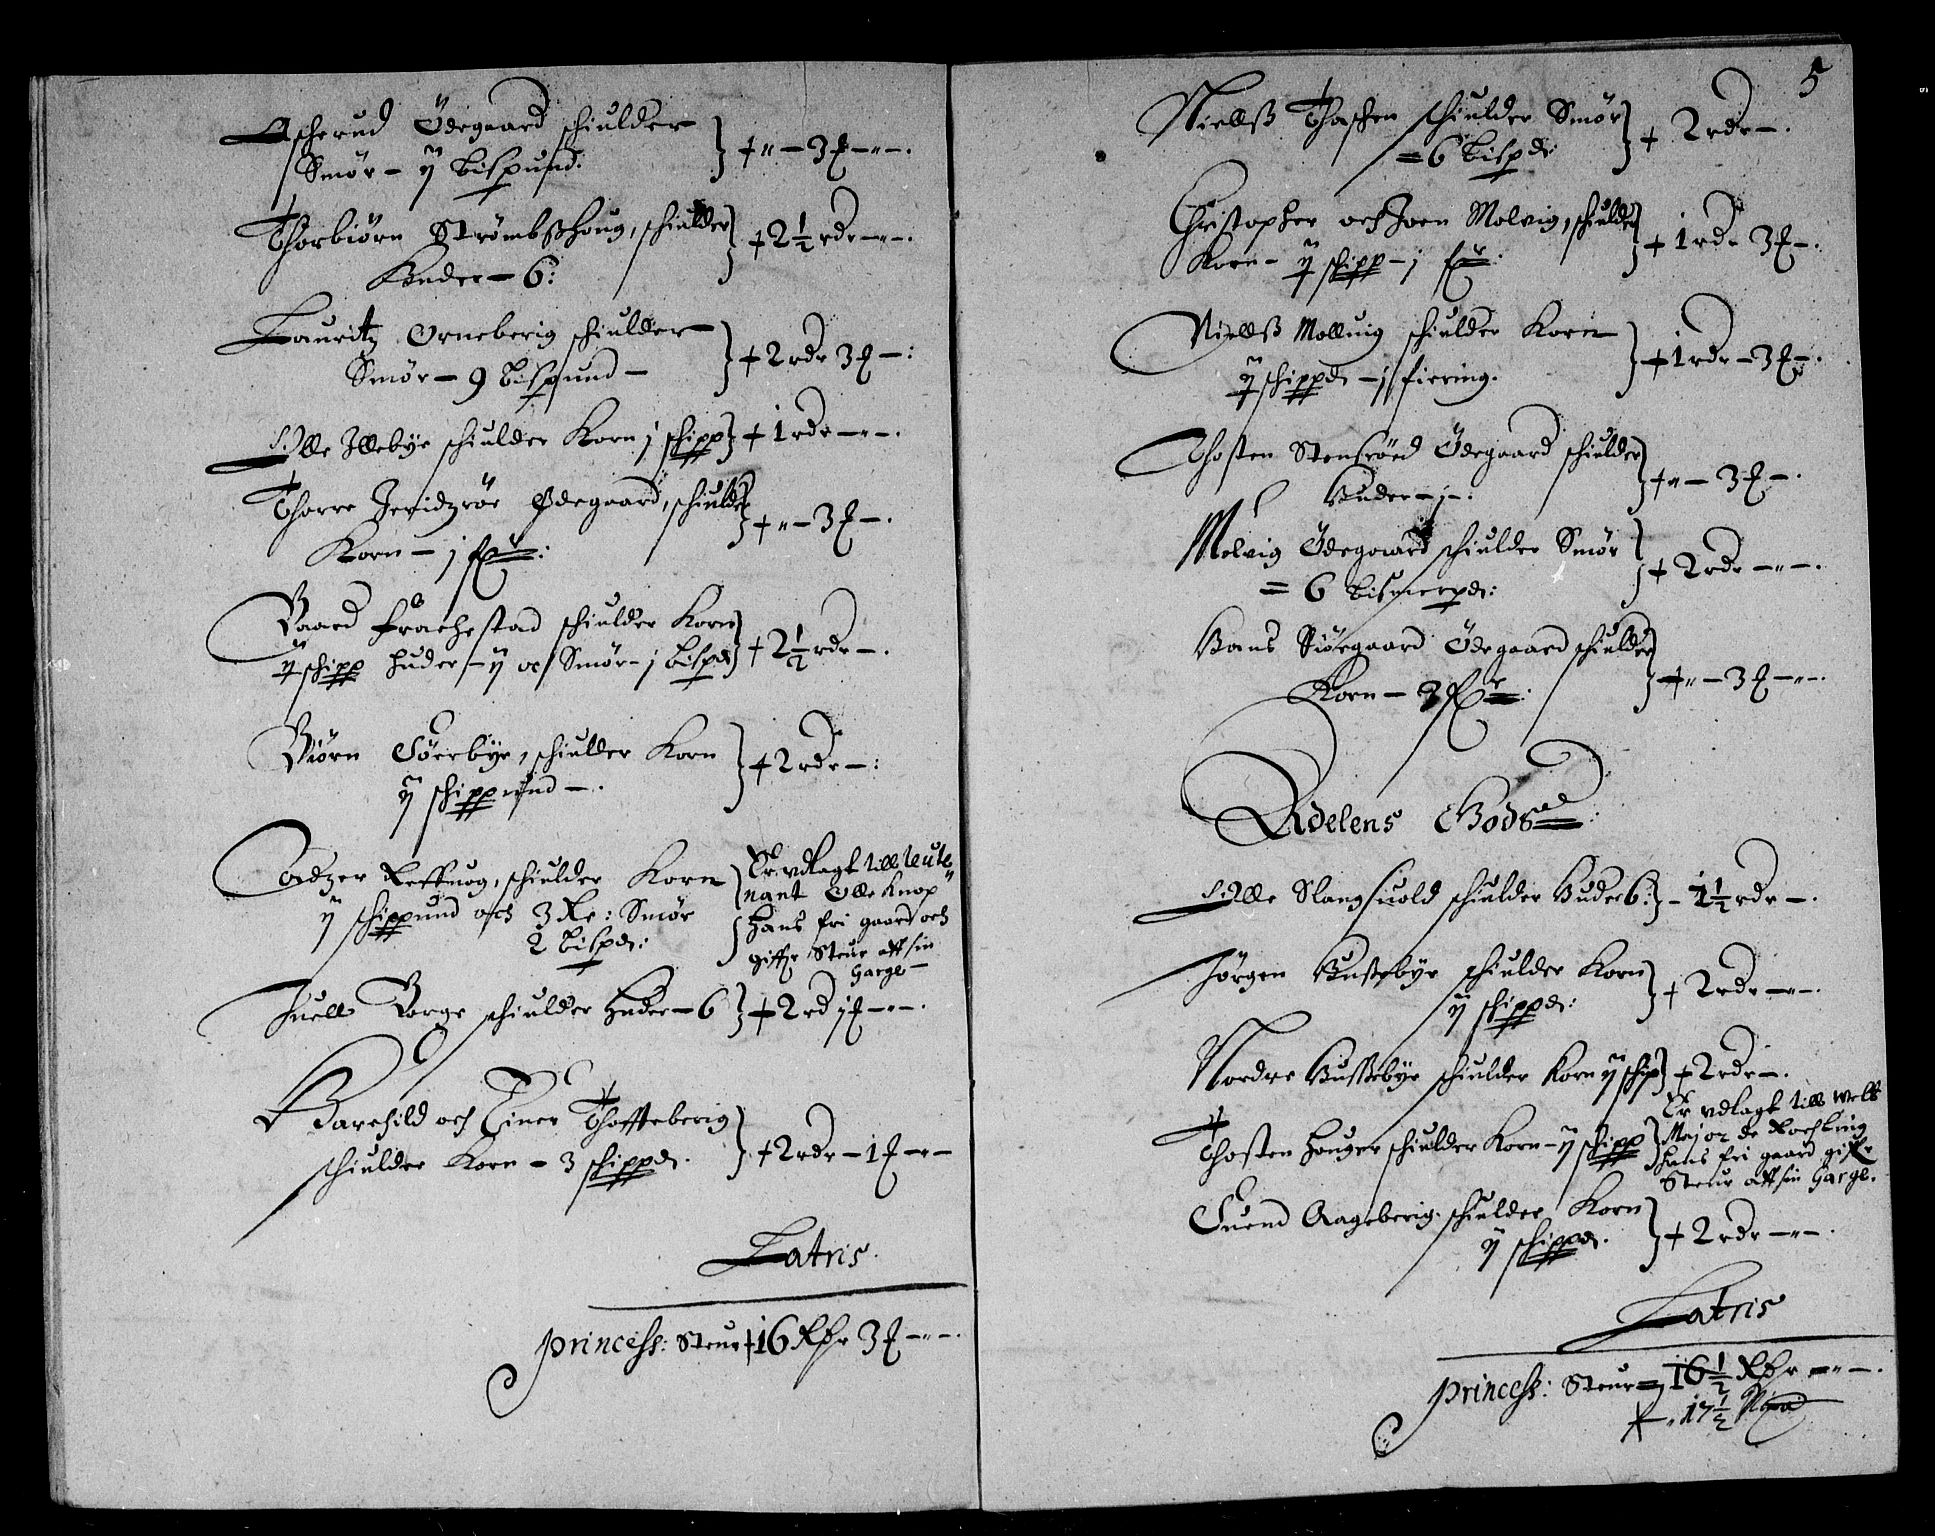 Ascherud Ödegaard schiulder
Smör - ij bispund. } + " - 3 ƒ - " -.
Thorbiörn Strömbshoug, schiulder } + 2 1/2 rdr - " -.
Huder - 6:
Lauritz Orneberig schiulder
Smör - 9 bispund - } + 2 rdr 3 ƒ - :
Olle Illebye schiulder Korn j schipp } + 1 rdr - " -.
Thorre Ødegaard, schiulder
Korn - j } + " - 3 ƒ -.
Baard Frachestad schiulder Korn
ij schipp huder - ij oc Smör - j bispd } + 2 1/2 rdr -.
Biörn Söerbye, schiulder Korn
ij schippund - . } + 2 rdr - :
Adzer Reffuog, schiulder Korn
ij schippund och 3 Smör
2 bispd:
Er vdlagt till leute
nant Olle Knop
hans fri gaard och
giffr Steur aff sin
Gaege
Juell Borge schiulder huder - 6 } + 2 rd 1 ƒ - " -.
Barchild och Einer Thoffteberig
schiulder Korn - 3 schippd. } + 2 rdr - 1 ƒ - " -
Latris.
Princess: Steur + 16 Rdr 3 ƒ - " -.
5
Nielß Thaschen schiulder Smör
= 6 bispd: } + 2 rdr -.
Christopher och Joen Molvig, schiulder
Korn - ij schipp - j } + 1 rdr 3 ƒ -.
Nielß Mollvig schiulder Korn
ij schippd - j fiering. } + 1 rdr - 3 ƒ -.
Thosten Stensröed Ödegaard schiulder
Huder - j - : } + " - 3 ƒ -.
Molvig Ödegaard schiulder Smör
= 6 bismerpd: } + 2 rdr - " -.
Hans Siöegaard Ödegaard schiulder
Korn - 3 } + " - 3 ƒ - " -.
Adelens Gods:
Olle Slangsuold schiulder Huder 6: } - 1 1/2 rdr -.
Jörgen Bustebye schiulder Korn
ij schippd: } + 2 rdr - " -.
Nordre Bustebye schiulder Korn ij schip } + 2 rdr -.
Thosten Houger schiulder Korn - ij schipp
Er vdlagt till
Major de Rochling
hans fri gaard giffr
Steur aff sin Gaege.
Suend Aageberig schiulder Korn
ij schippd. } + 2 rdr - " -.
Latris
Princess: Steur = 16 1/2 Rdr - " -.
17 1/2